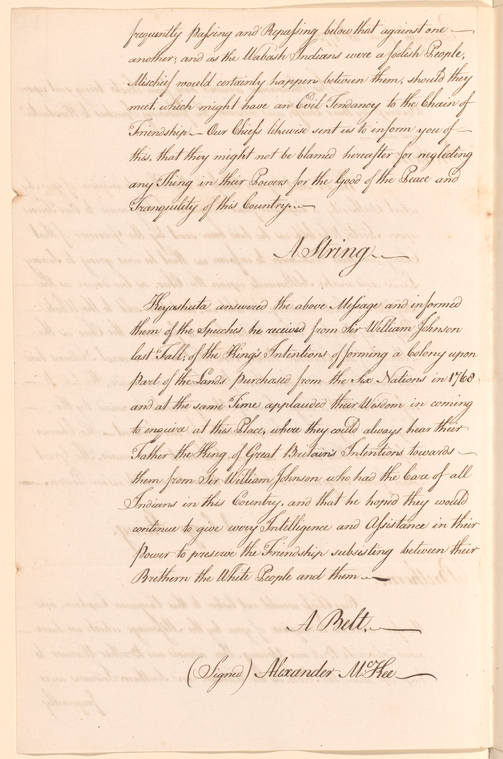 frequently Passing and Repassing below that against one
another; and as the Wabash Indians were a foolish People,
Mischief would certainly happen between them, should they
meet, which might have an Evil Tendancy to the Chain of
Friendship — Our Chiefs likewise sent us to inform you of
this, that they might not be blamed hereafter for neglecting
any Thing in their Powers for the Good of the Peace and
Tranquility of this Country. —
A String —
Keyashuta answered the above Message and informed
them of the Speeches he received from Sir William Johnson
last Fall; of the King's Intentions of forming a Colony upon
Part of the Lands Purchased from the Six Nations in 1768
and at the same Time applauded their Wisdom in coming
to enquire at this Place, where they could always hear their
Father the King of Great Britain's Intentions towards
them from Sir William Johnson who had the Care of all
Indians in this Country, and that he hoped they would
continue to give every Intelligence and Assistance in their
Power to preserve the Friendship subsisting between their
Brethern the White People and them —
A Belt. —
(Signed) Alexander McKee —